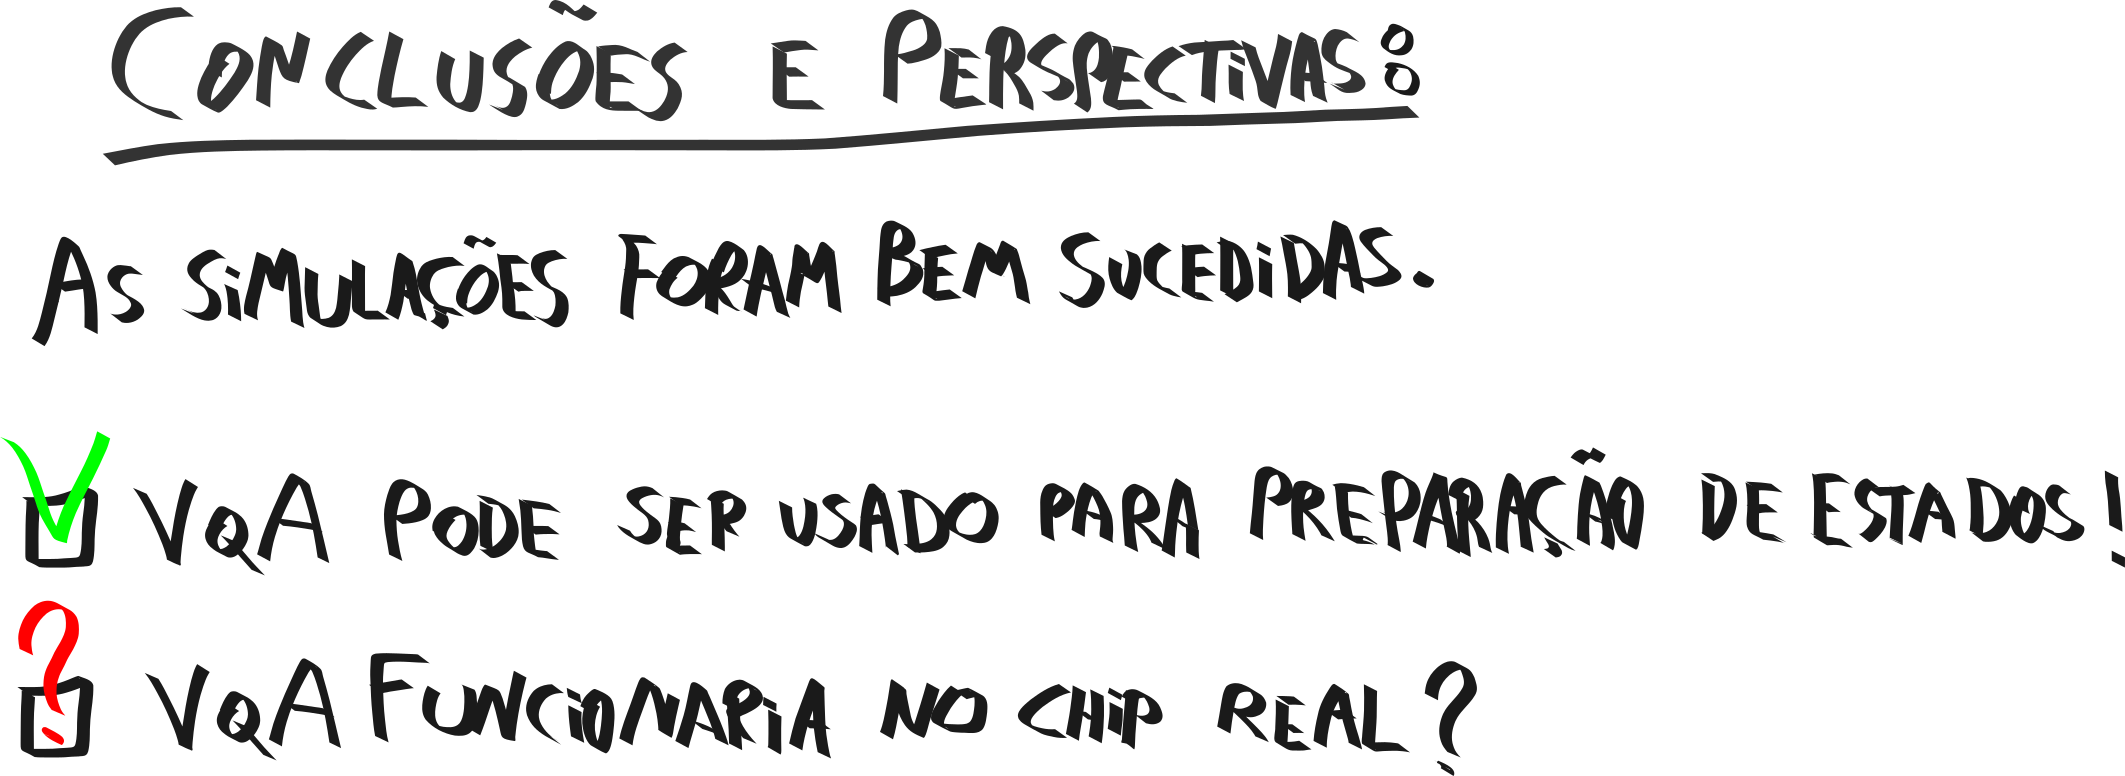 CONCLUSÕES E PERSPECTIVAS:
AS SIMULAÇÕES FORAM BEM SUCEDIDAS.
VQA PODE SER USADO PARA PREPARAÇÃO DE ESTADOS!
? VQA FUNCIONARIA NO CHIP REAL?